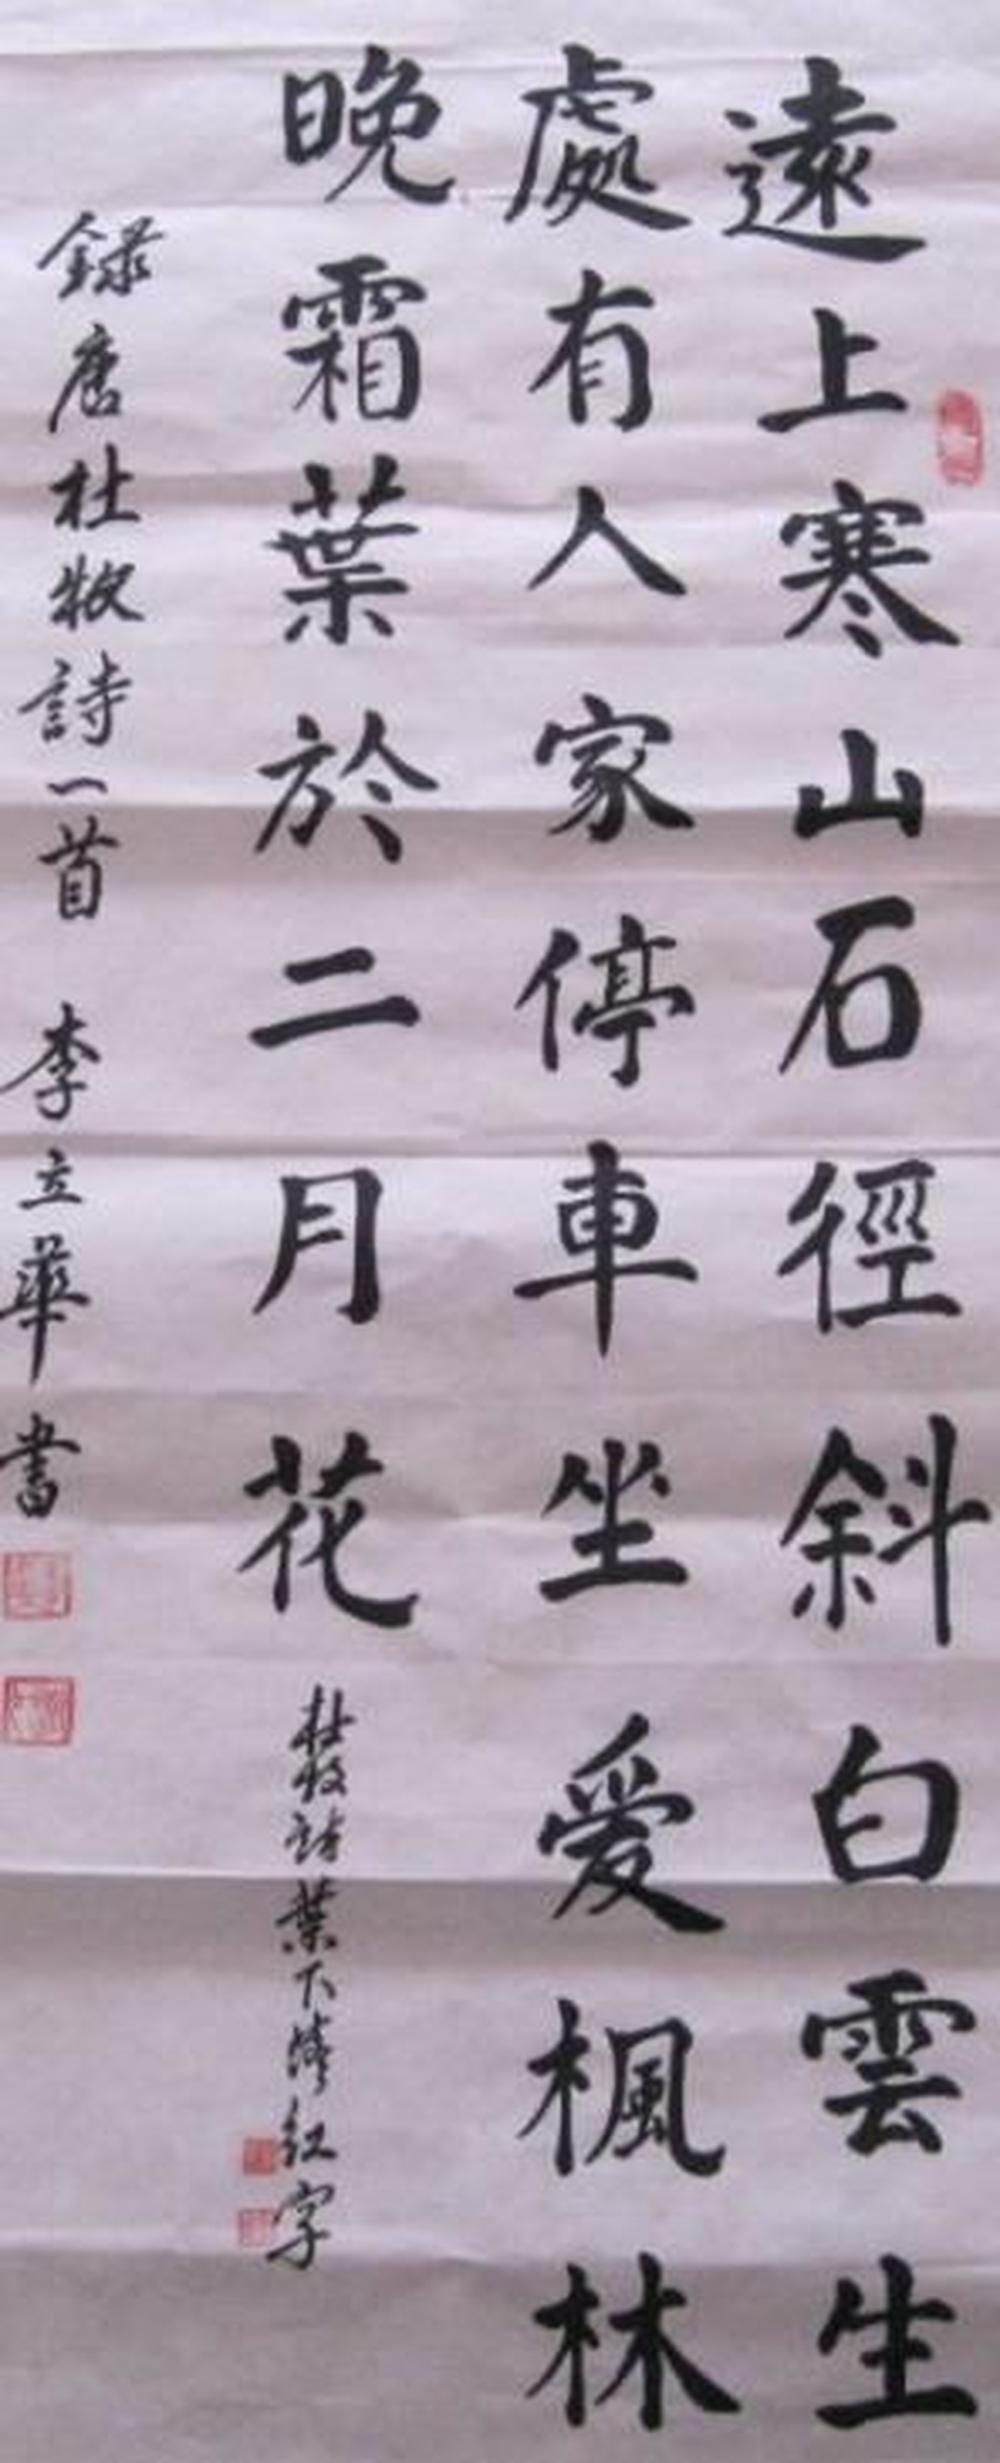 遠上寒山石徑斜白雲生
處有人家停車坐愛楓林
晚霜葉於二月花
杜牧詩葉下漏紅字
錄唐杜牧詩一首 李立華書